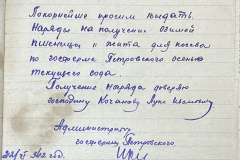 Покорнейше просим выдать
Наряды на получение озимой
пшеницы и жита для посева
по госферме Петровского осенью
текущего года.
Получение наряда доверяю
господину Коханову Луке
Администратор
госфермы Петровского.